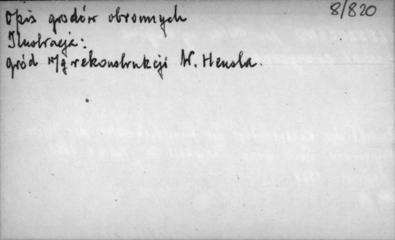 8/820
Opis grodów obronnych
Ilustracja:
gród w/g rekonstrukcji W. Hensla.